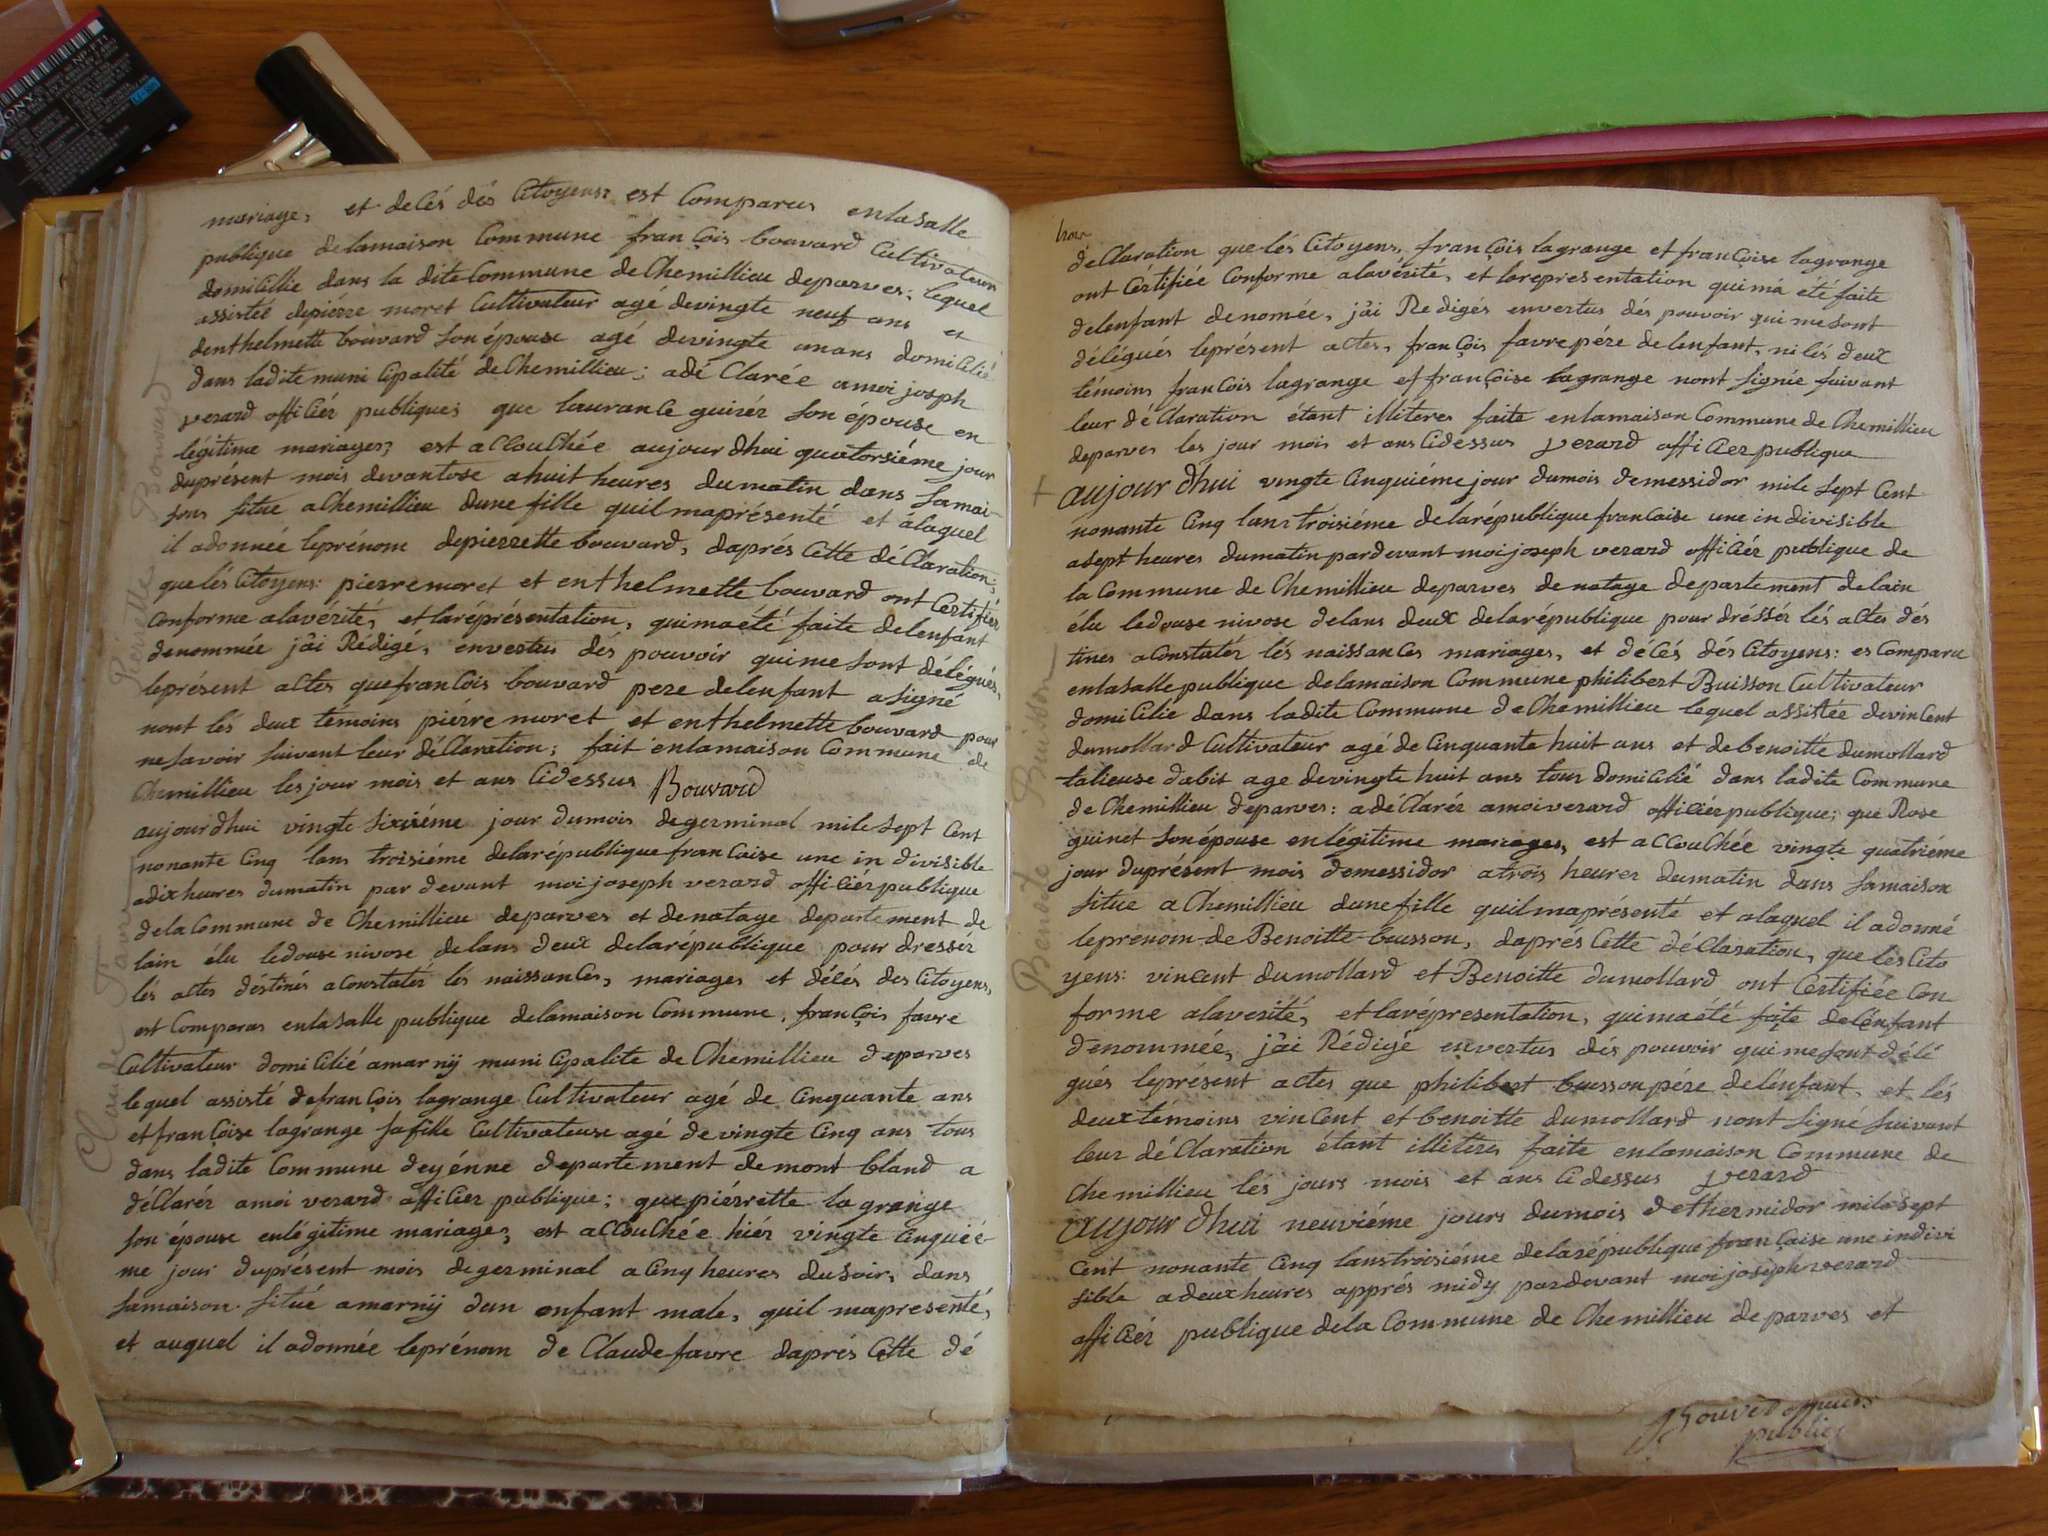 mariage, et decés dés Citoyens: est Comparus enlasalle
publique delamaison Commune françois bouvard Cultivateur
domicillie dans la dite Commune de Chemillieu deparves; lequel
assistéé depiérre moret Cultivateur agé devingte neuf ans et
denthelmette bouvard son épouse agé devingte unans domicilié
dans ladite municipalité de Chemillieu; adé Clarée amoi joseph
verard officiér publique; que laurance guinér son épouse en
légitime mariages; est accouchée aujourdhui quatorsiéme jour
duprésent mois devantose ahuit heures dumatin dans samai-
son situe achemillieu dune fille quil maprésenté et alaquel
il adonnée leprénom depierrette bouvard, daprés Cette déClaration;
que lés Citoyens: pierre moret et enthelmette bouvard ont Certifiér
Conforme alavérité, et laréprésentation, quimaété faite delenfant
denommée jài Rédigé, envertus dés pouvoir quime sont delégués,
leprésent actes que françois bouvard pere delenfant asigné
nont lés deux témoins piérre moret et enthelmette bouvard pour
ne savoir suivant leur déClaration; fait enlamaison Commune de
Chemillieu les jour mois et ans Cidessus Bouvard
Pierrette Bouvard
aujourdhui vingte sixiéme jour dumois degerminal mile sept Cent
nonante Cinq lans troisiéme delarépublique francaise une indivisible
adixheures dumatin par devant moi joseph verard officiér publique
dela Commune de Chemillieu deparves et denatage departement de
lain élu ledouse nivose delans deux delarépublique pour dressér
lés actes déstinés aConstatér lés naissances, mariages et décés des Citoyens,
est Comparas enlasalle publique delamaison Commune, françois favre
Cultivateur domicilié amarnij municipalite de Chemillieu deparves
lequel assisté defrançois lagrange Cultivateur agé de Cinquante ans
et françoise lagrange safille Cultivateuse agé devingte Cinq ans tous
dans ladite Commune deyénne departement demont bland a
déClarér amoi verard officier publique; que piérrette lagrange
son épouse enlégitime mariage, est accouchée hiér vingte Cinquié-
me jour duprésent mois degerminal aCinq heures dusoir, dans
samaison situé amarnij dun enfant male, quil mapresenté,
et auquel il adonnée leprénom de Claude favre daprés Cette dé
Claude Favre
déClaration que lés Citoyens, françois lagrange et françoise lagrange
ont Cértifiée Conforme alavérité, et larepresentation quima été faite
delenfant denomée, jài Redigés envertus dés pouvoir qui me sont
délégués leprésent actes, françois favre pére delenfant, ni lés deux
témoins françois lagrange et françoise lagrange nont signée suivant
leur déClaration étant illitéres faite enlamaison Commune de Chemillieu
deparves les jour mois et ans Cidessus verard officier publique
+ aujourdhui vingte Cinquiéme jour dumois demessidor mile sept Cent
nonante Cinq lans troisiéme delarépublique francaise une indivisible
asept heures dumatin pardevant moi joseph verard officiér publique de
la Commune de Chémillieu deparves de natage département delain
élu ledouse nivose delans deux delarépublique pour dréssér lés actes dés
tines aConstatér lés naissances mariages, et décés dés Citoyens: es Comparu
enlasalle publique delamaison Commune philibert Buisson Cultivateur
domicilie dans ladite Commune de Chemillieu lequel assistée devincent
dumollard Cultivateur agé de Cinquante huit ans et de benoitte dumollard
talieuse dabit age devingte huit ans tous domicilié dans ladite Commune
de Chemillieu deparves: adéClarér amoi verard officiér publique; que Rose
guinet son épouse enlégitime mariages, est accouchée vingte quatriéme
jour duprésent mois demessidor atrois heures dumatin dans samaison
situe a Chemillieu dune fille quil maprésenté et alaquel il adonné
leprenom de Benoitte buisson, daprés Cette déClaration, que lés Cito
yens: vincent dumollard et Benoitte dumollard ont Certifiée Con
forme alaverité, et laréprésentation, quimaété faite delénfant
dénommée, jài Rédigé envertus dés pouvoir qui me sont délé
gués leprésent actes que philibert buisson pére delénfant, et lés
deux témoins vincent et benoitte dumollard nont signé suivant
leur déClaration étant illitéres faite enlamaison Commune de
Chemillieu lés jours mois et ans Cidessus verard
Benoite Buisson
aujourdhui neuviéme jours dumois dethermidor mile sept
Cent nonante Cinq lans troisiéme delarépublique française une indivi
sible adeux heures apprés midy pardevant moi joseph verard
officiér publique dela Commune de Chemillieu de parves et
publics
SONY
NP-FT1